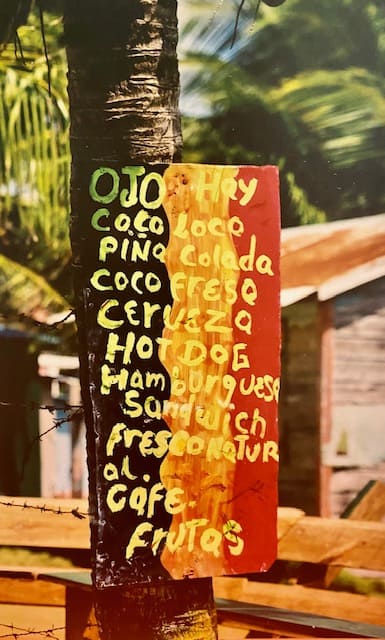 OJO Hay
COCO LOCO
PIÑA Colada
COCO FRESA
CERVEZA
HOT DOG
HamBURGUESA
Sandwich
FRESCO NATUR
al.
CAFE.
FRUTAS